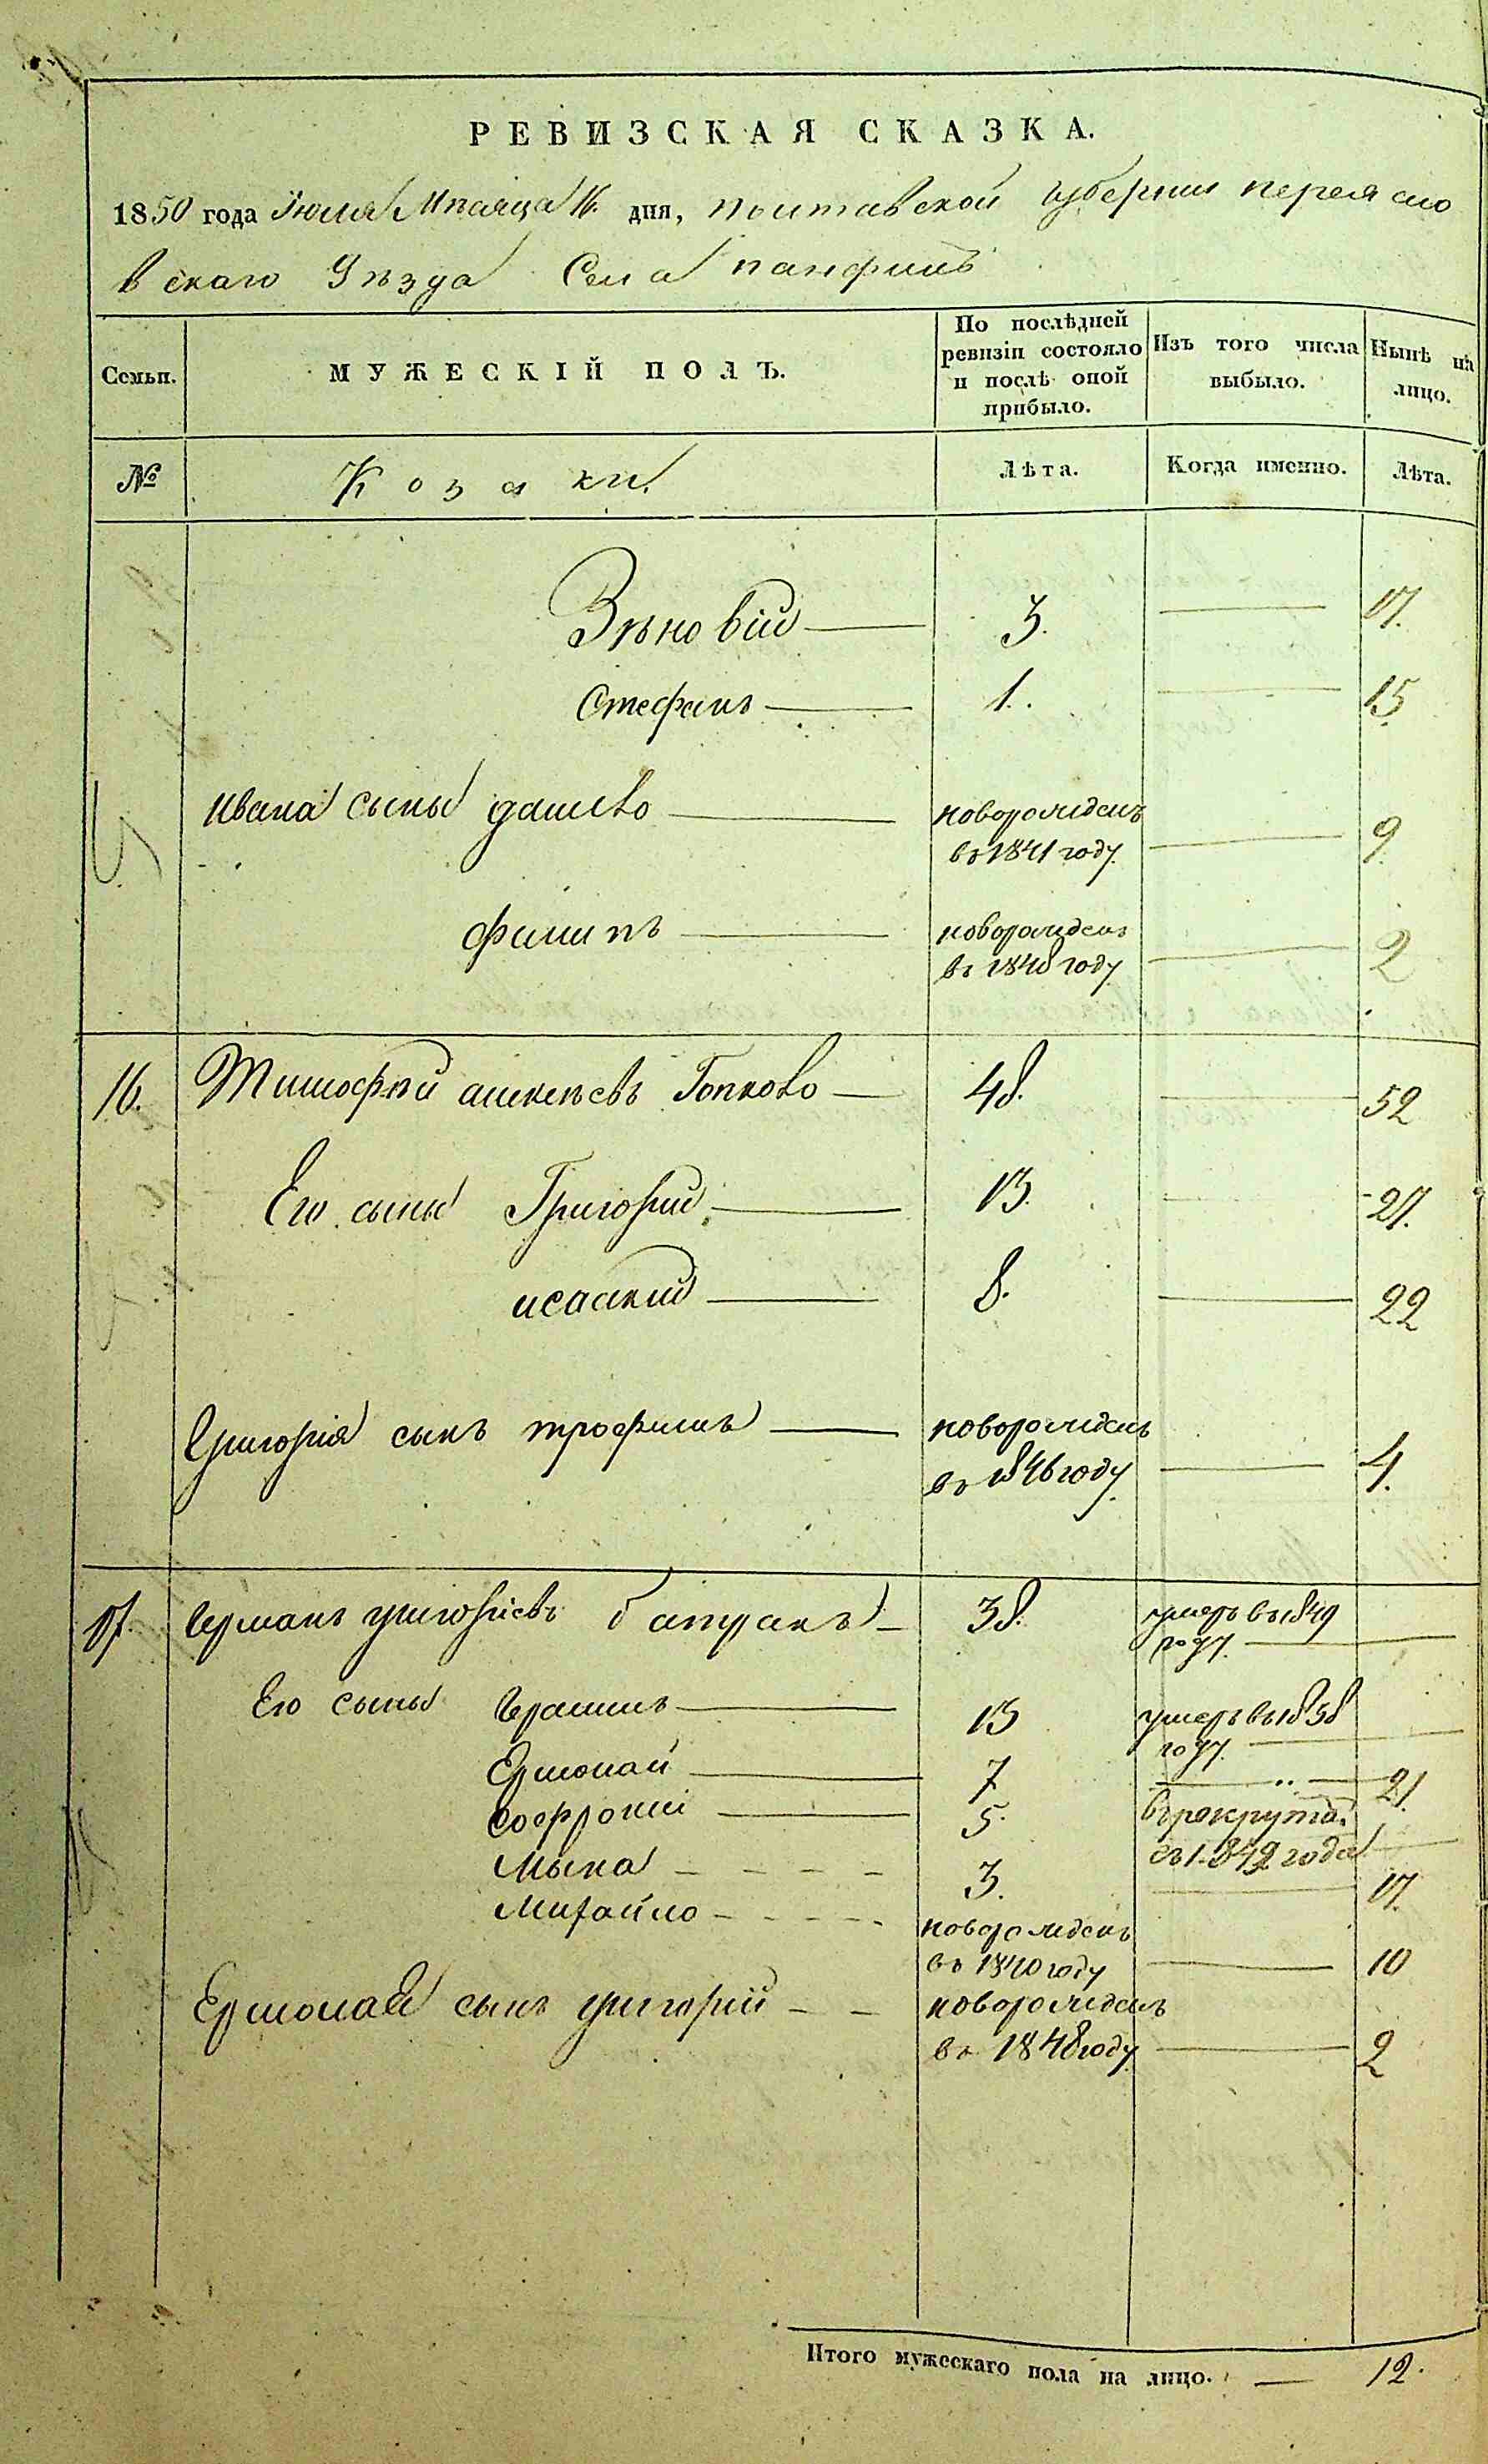 РЕВИЗСКАЯ СКАЗКА.
1850 года Июля Мпсяца 16. дня, полтавской губернии переясло
вскаго Упзда Села панфилъ
Семьи.
МУЖЕСКІЙ ПОЛЪ.
По послѣдней ревизіи состояло и послѣ оной прибыло.
Изъ того числа выбыло.
Нынѣ на лицо.
№
Козаки
Лѣта.
Когда именно.
Лѣта.
Зѣновій — 3. — 17.
Стефанъ — 1. — 15
Ивана сыны данило — новорожденъ
въ 1841 году. — 9.
филипъ — новорожденъ
въ 1848 году. — 2
16. Тимофей алексѣевъ Гопково — 48. — 52
Его сыны Григорий — 13. — 27.
исаакий — 8. — 22
Григорія сынъ трофимъ — новорожденъ
въ 1846 году. — 4.
17. Германъ григоріевъ батракъ — 38. умеръ въ 1849
году. —
Его сыны Герасимъ — 13 умеръ въ 1838
году. —
Ермолай — 7 — 21.
Софроний — 5. в рекрута
съ 1849 года —
Мына — 3. — 17.
Михайло — новорожденъ
въ 1840 году — 10
Ермолая сынъ григорий — новорожденъ
въ 1848 году — 2
Итого мужескаго пола на лицо. — 12.